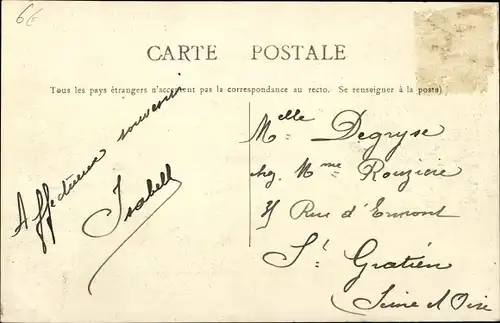 6€
CARTE POSTALE
Tous les pays étrangers n'acceptent pas la correspondance au recto. Se renseigner à la poste.
Affectueux souvenir
Isabell
Melle Degryse
chez Mme Rouzière
Rue d'Ermont
St Gratien
Seine et Oise